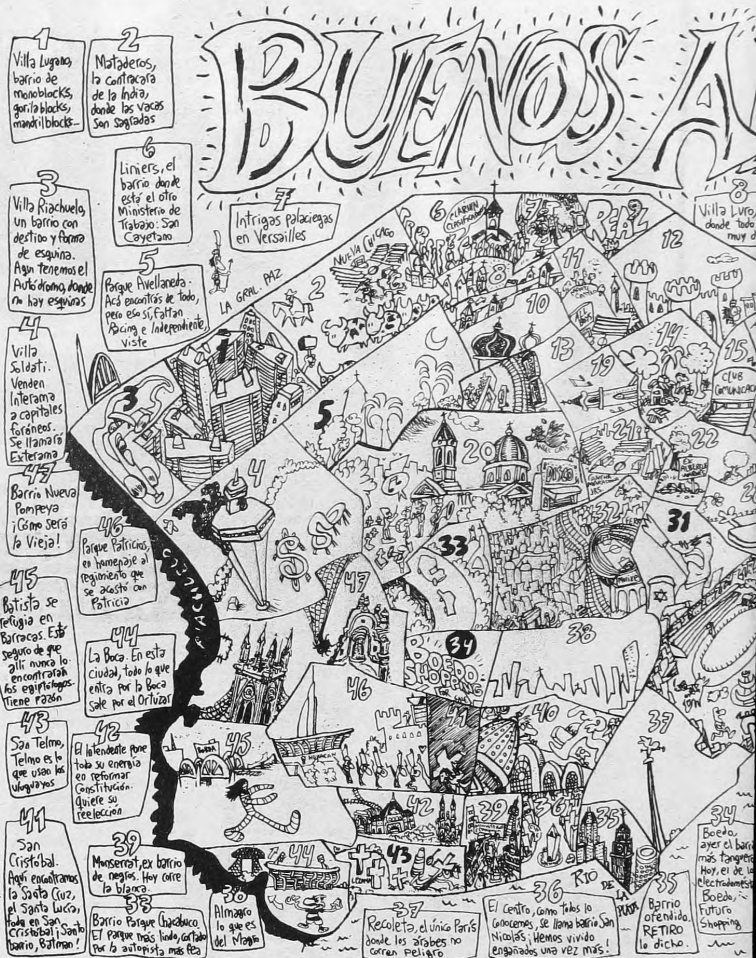 BUENOS A
1
Villa Lugano,
barrio de
monoblocks,
gorilablocks,
mandrilblocks...
2
Mataderos,
la contracara
de la India,
donde las vacas
son sagradas
6
Liniers, el
barrio donde
está el otro
Ministerio de
Trabajo: San
Cayetano
7
Intrigas palaciegas
en Versailles
8
Villa Luro,
donde todo
muy d
3
Villa Riachuelo,
un barrio con
destino y forma
de esquina.
Aquí tenemos el
Autódromo, donde
no hay esquinas
5
Parque Avellaneda.
Acá encontrás de todo,
pero eso sí, faltan
Racing e Independiente,
viste
4
Villa
Soldati.
Venden
Interama
a capitales
foráneos.
Se llamará
Exterama
47
Barrio Nueva
Pompeya
¡Cómo será
la Vieja!
46
Parque Patricios,
en homenaje al
regimiento que
se acostó con
Patricia
45
Batista se
refugia en
Barracas. Está
seguro de que
allí nunca lo
encontrarán
los egiptólogos.
Tiene razón
44
La Boca. En esta
ciudad, todo lo que
entra por la Boca
sale por el Ortúzar
43
San Telmo,
Telmo es lo
que usan los
uruguayos
42
El intendente pone
toda su energía
en reformar
Constitución.
Quiere su
reelección
41
San
Cristóbal.
Aquí encontramos
la Santa Cruz,
el Santa Lucía,
todo en San
Cristóbal ¡Santo
barrio, Batman!
39
Monserrat, ex barrio
de negros. Hoy corre
la blanca.
33
Barrio Parque Chacabuco.
El parque más lindo, cortado
por la autopista más fea
38
Almagro
lo que es
del Magro
37
Recoleta, el único París
donde los árabes no
corren peligro
36
El Centro, como todos lo
conocemos, se llama barrio San
Nicolás ¡Hemos vivido
engañados una vez más!
35
Barrio
ofendido.
RETIRO
lo dicho.
34
Boedo,
ayer el barrio
más tanguero
Hoy, el de lo
electrodomést
Boedo,
Futuro
Shopping
LA GRAL. PAZ
NUEVA CHICAGO
6
CLARIN
CLASIFICADOS
7
REAL
12
2
8
11
10
1
13
14
15
CLUB
COMUNICACI
19
3
5
20
DISCO
21
22
4
33
32
31
47
34
BOEDO
SHOPPING
38
46
41
40
37
45
42
39
36
35
44
43
RIACHUELO
RÍO
DE
LA
PLATA